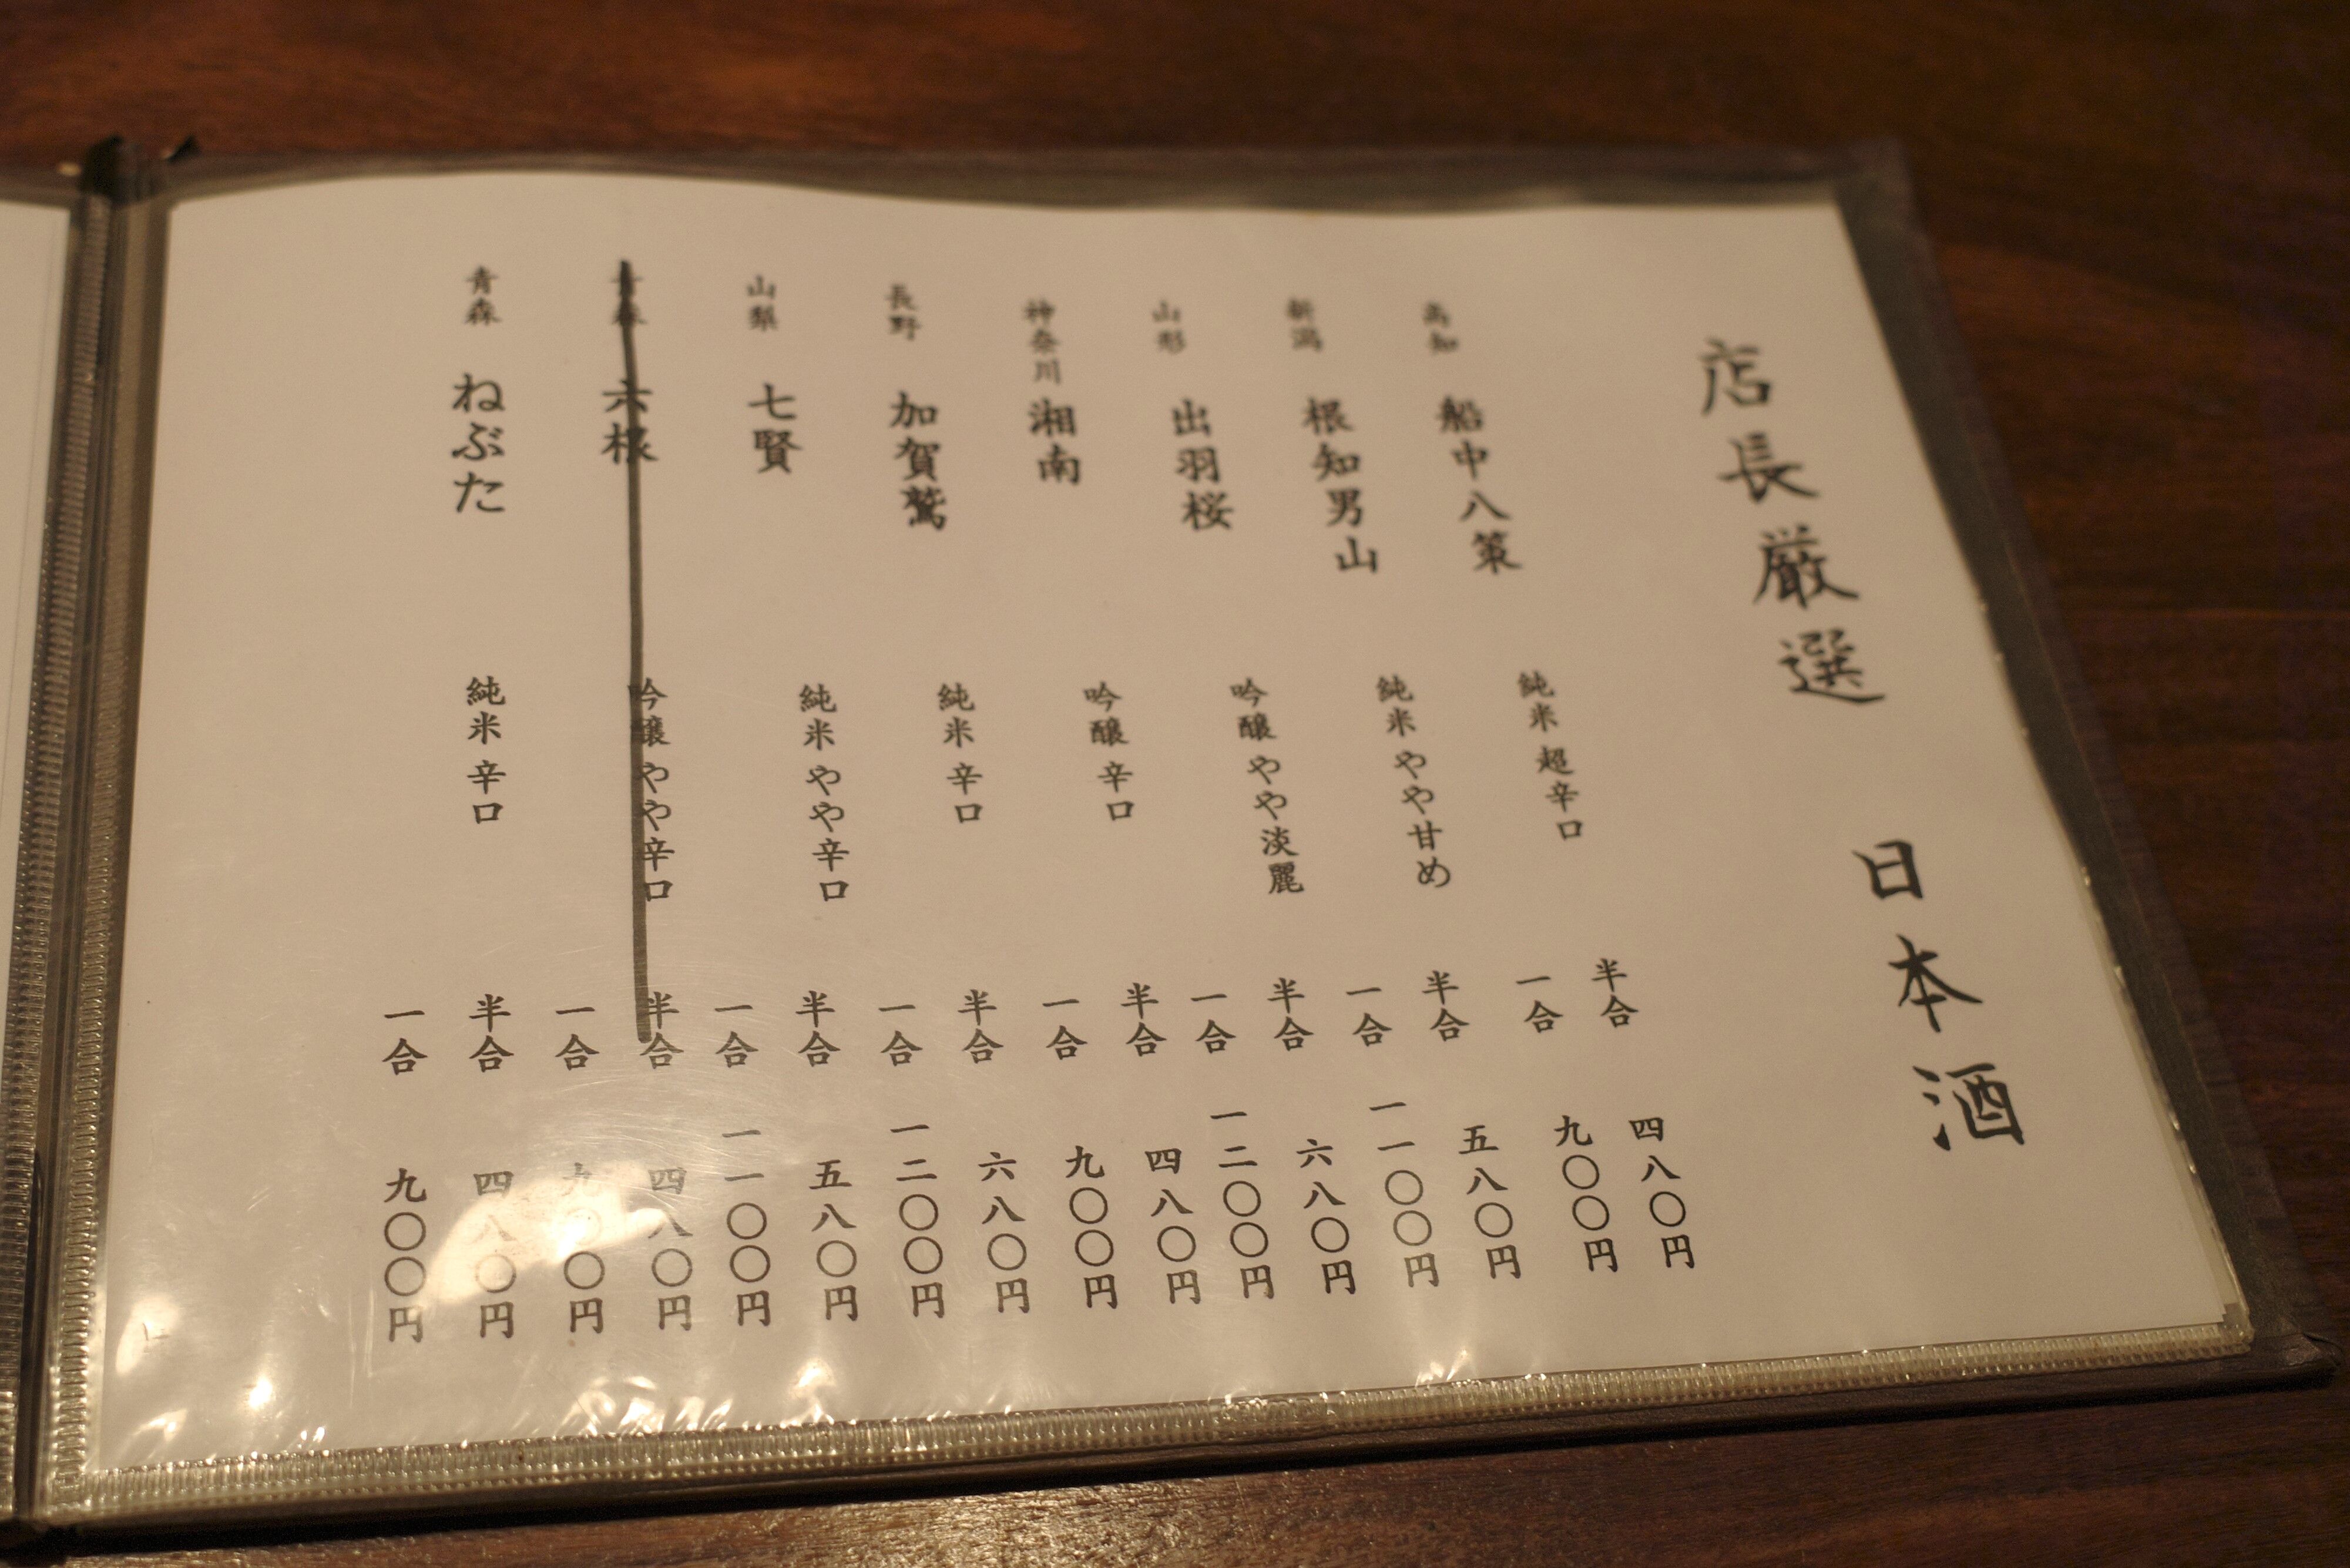 店長厳選 日本酒
高知 船中八策 純米 超辛口 半合 四八〇円
一合 九〇〇円
新潟 根知男山 純米 やや甘め 半合 五八〇円
一合 一一〇〇円
山形 出羽桜 吟醸 やや淡麗 半合 六八〇円
一合 一二〇〇円
神奈川 湘南 吟醸 辛口 半合 四八〇円
一合 九〇〇円
長野 加賀鶯 純米 辛口 半合 六八〇円
一合 一二〇〇円
山梨 七賢 純米 やや辛口 半合 五八〇円
一合 一一〇〇円
青森 六根 吟醸 やや辛口 半合 四八〇円
一合 九〇〇円
青森 ねぶた 純米 辛口 半合 四八〇円
一合 九〇〇円